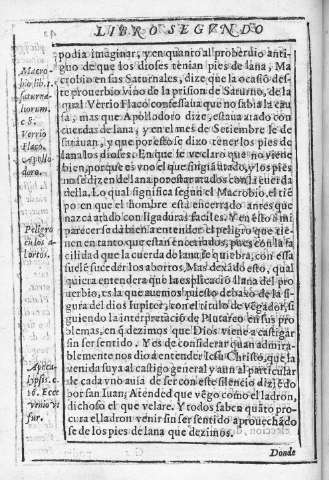 LIBRO SEGVNDO
podia imaginar, y en quanto al prouerbio anti-
guo de que los dioses tenian pies de lana, Ma
crobio en sus Saturnales, dize que la ocasiõ des-
te prouerbio vino de la prision de Saturno, de la
qual Verrio Flaco confessaua que no sabia la cau
sa, mas que Apollodoro dize, estaua atado con
cuerdas de lana, y en el mes de Setiembre se de
satauan, y que por esto se dixo tener los pies de
lana los dioses: En que se ve claro que no viene
bien, porque es vno el que fingiã atado, y los pies
no se dizen de lana por estar atados con la cuerda
della. Lo qual significa segun el Macrobio, el tiẽ
po en que el hombre està encerrado antes que
nazca atado con ligaduras faciles. Y en esto a mi
parecer se dà bien a entender el peligro que tie-
nen en tanto que estan encerrados, pues con la fa
cilidad que la cuerda de lana se quiebra, con essa
suele suceder los abortos. Mas dexãdo esto, qual
quiera entendera que la esplicaciõ llana del pro
uerbio, es la que auemos puesto debaxo de la fi-
gura del dios Iupiter, con el titulo de vẽgador, si
guiendo la interpretaciõ de Plutarco en sus pro
blemas, en q̃ dezimos que Dios viene a castigar
sin ser sentido. Y es de considerar quan admira-
blemente nos dio a entender Iesu Christo, que la
venida suya al castigo general y aun al particular
de cada vno auia de ser con este silencio diziẽdo
por san Iuan, Atended que vẽgo como el ladron,
dichoso el que velare. Y todos saben quãto pro-
cura el ladron venir sin ser sentido aprouechãdo
se de los pies de lana que dezimos.
Donde
Macro-
bio lib. 1.
saturna-
liorum.
c. 8.
Verrio
Flaco.
Apollo-
doro.
Peligro
de los a-
bortos.
Apoca-
lypsis. c.
16. Ecce
venio vt
fur.